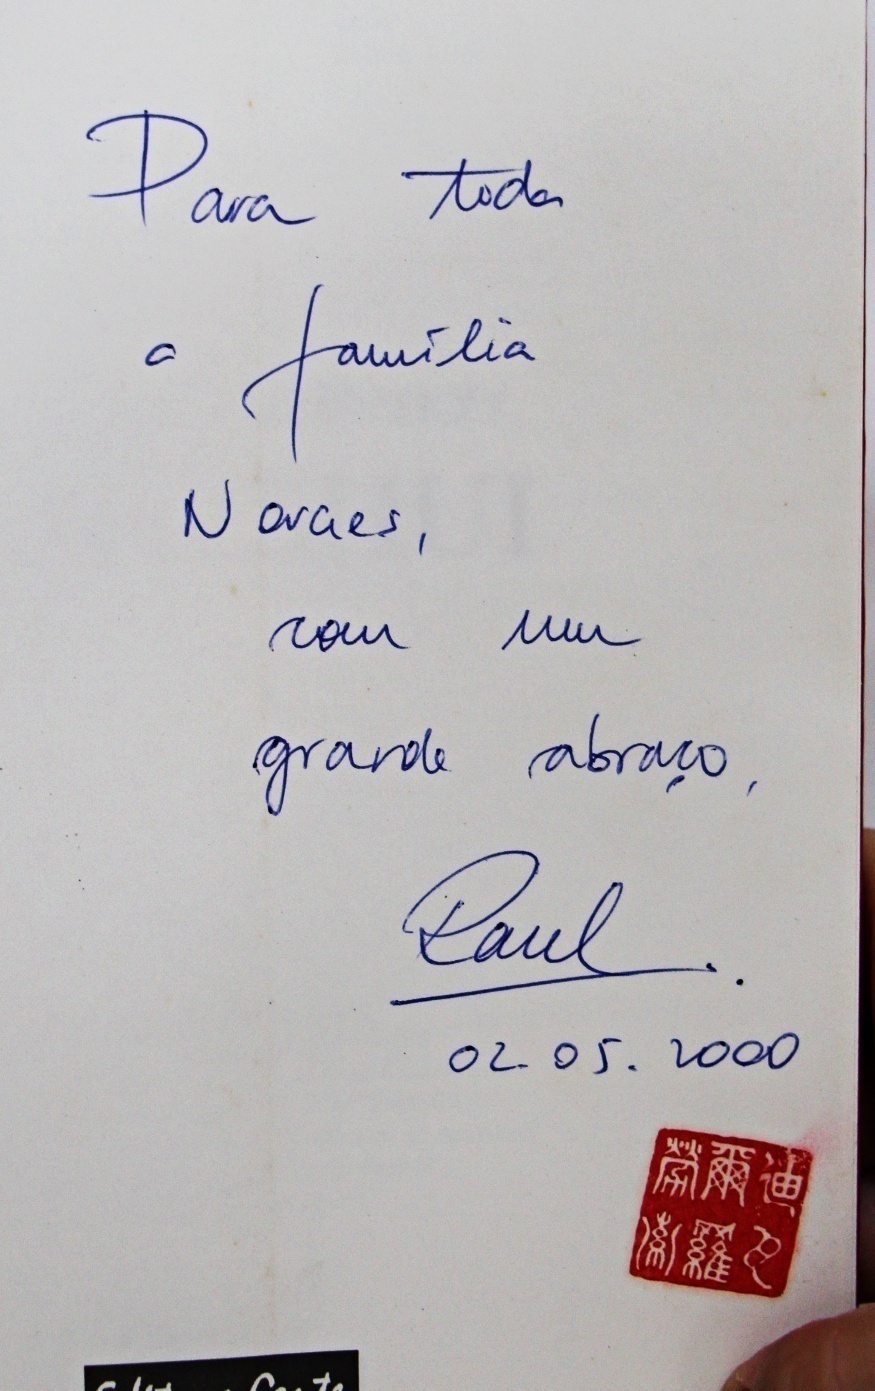 Para toda
a família
Novaes,
com um
grande abraço,
Raul.
02.05.2000
勞爾迪